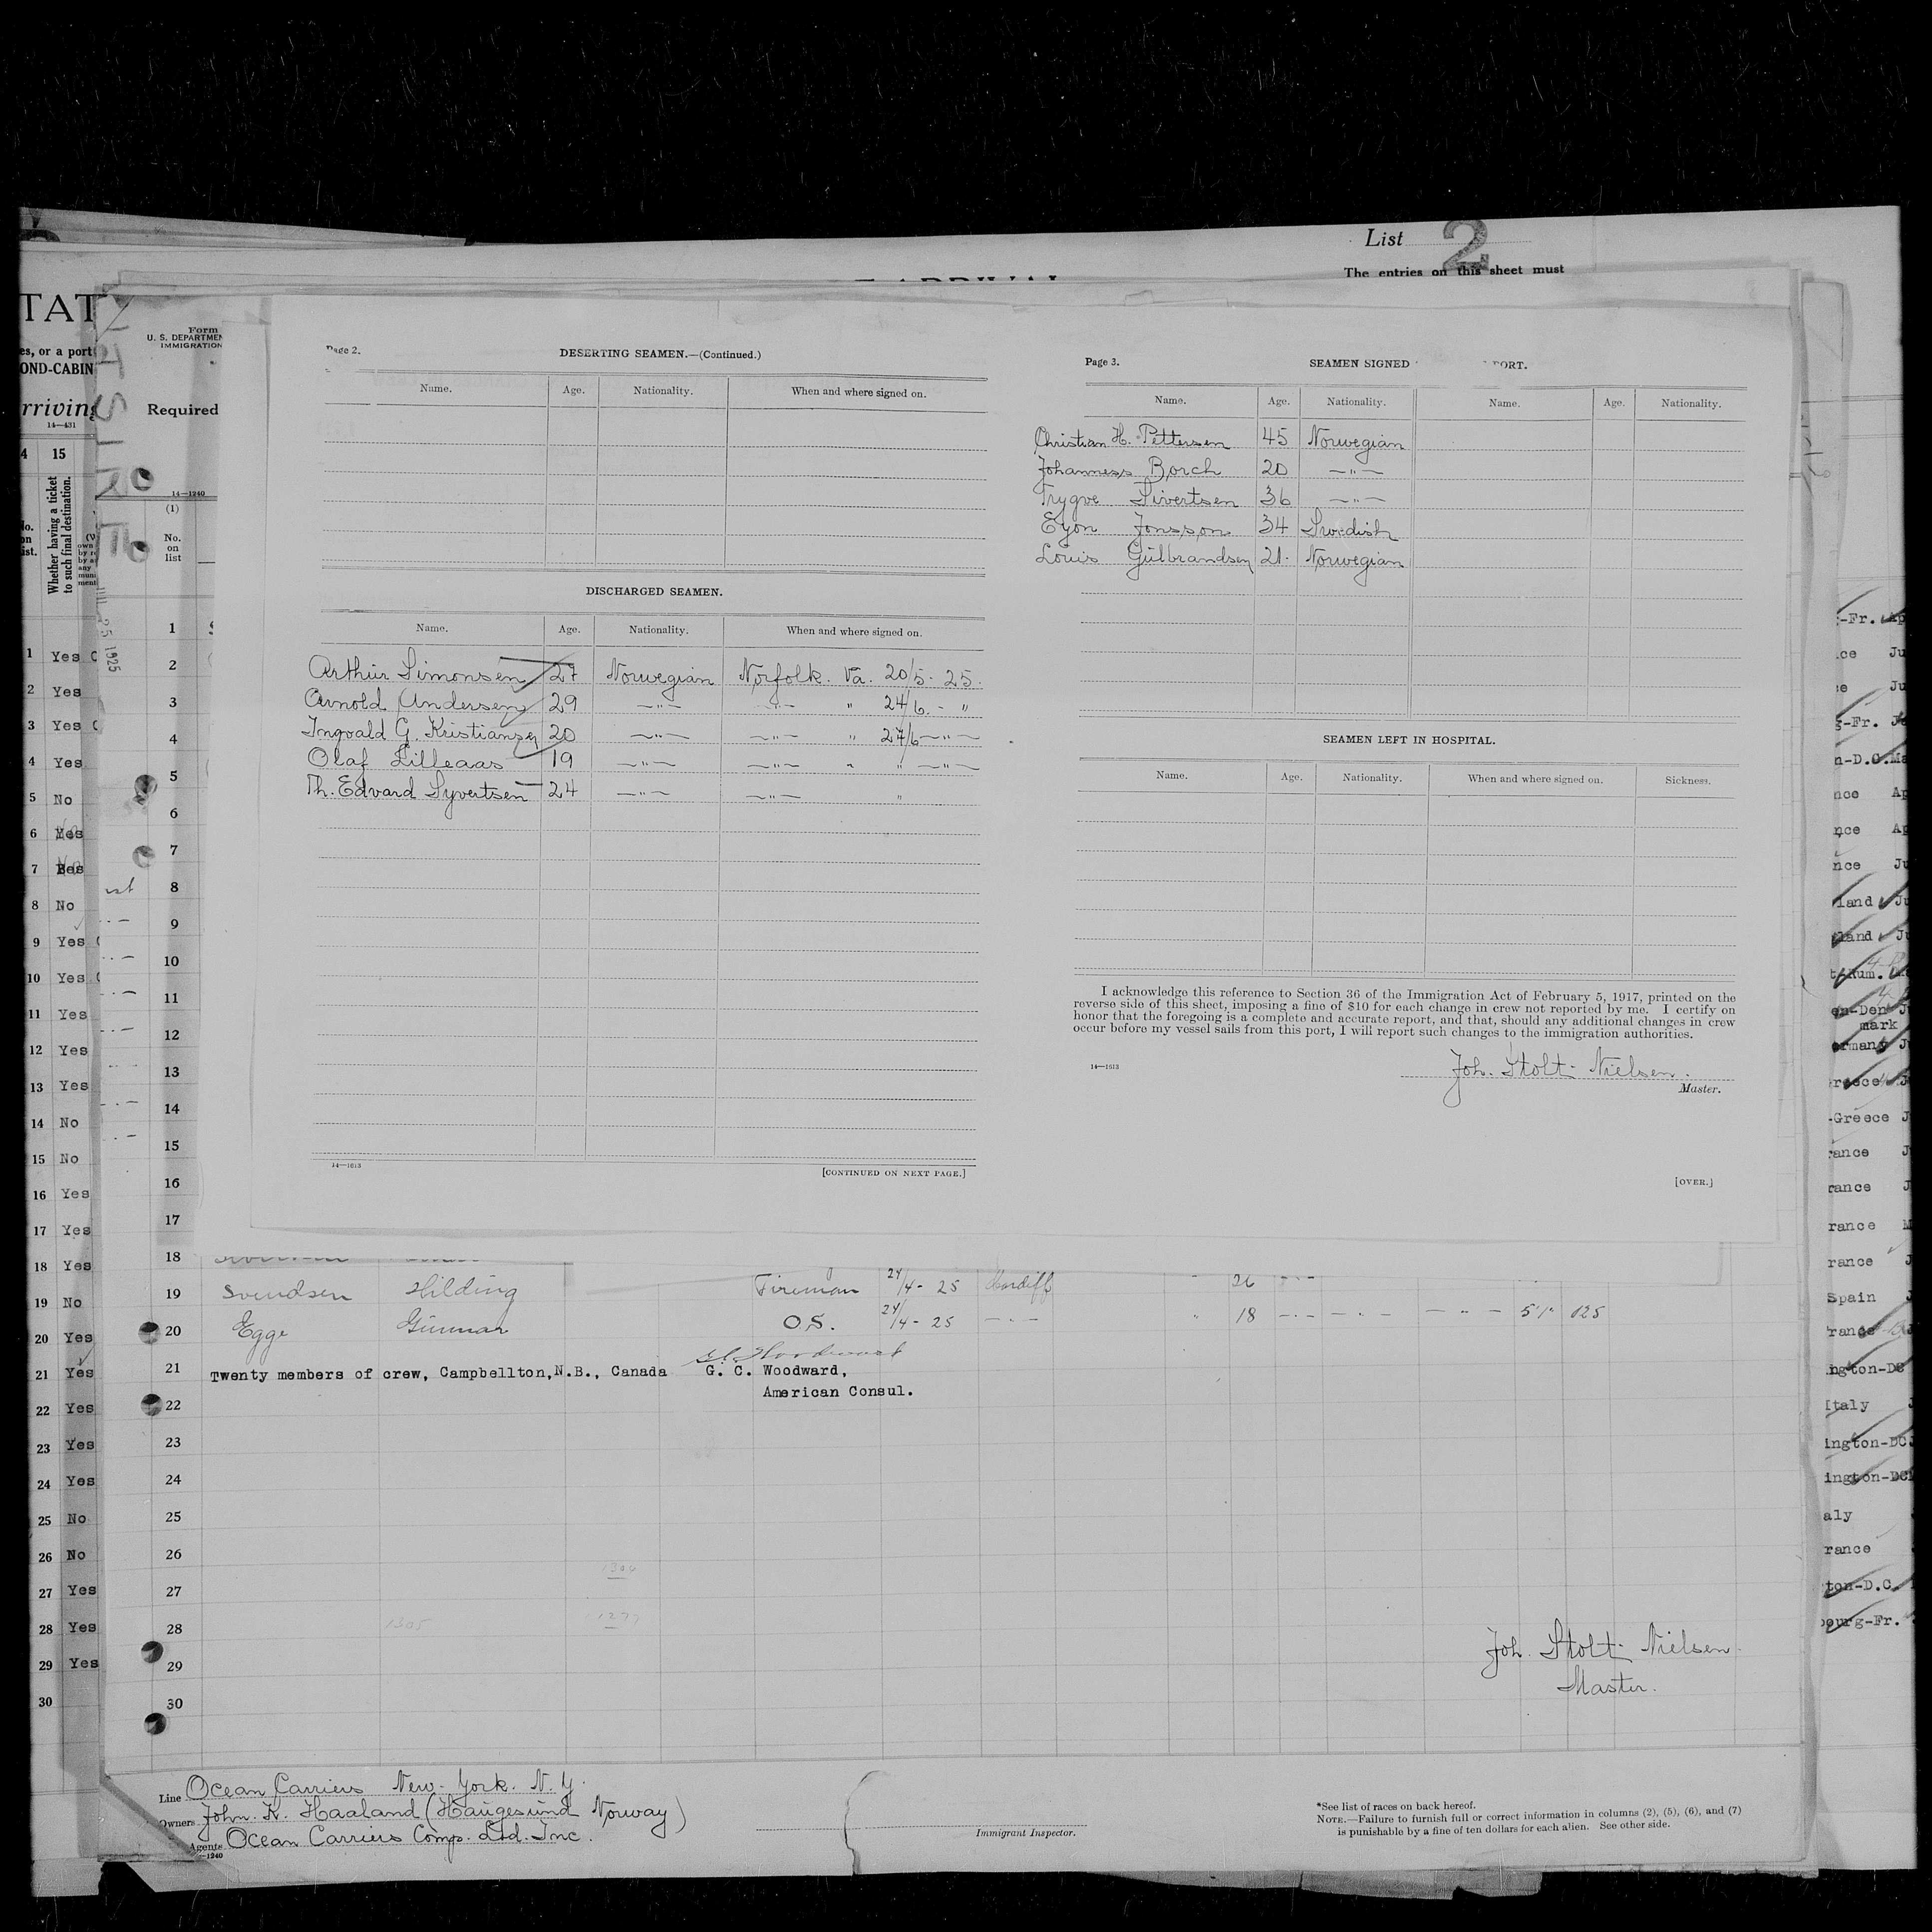 List 2
The entries on this sheet must
TAT
es, or a port
OND-CABIN
rriving
14—431
4 15
No.
on
list.
Whether having a ticket
to such final destination.
Form
U. S. DEPARTMEN
IMMIGRATION
Required
14—1240
(1)
No.
on
list
25 1925
Page 2.
DESERTING SEAMEN.—(Continued.)
Name. Age. Nationality. When and where signed on.
DISCHARGED SEAMEN.
Name. Age. Nationality. When and where signed on.
Arthur Simonsen 27 Norwegian Norfolk. Va. 20/5. 25.
Arnold Andersen 29 —"— —"— " 24/6. - "
Ingvald G. Kristiansen 20 —"— —"— " 27/6 —"—
Olaf Lilleaas 19 —"— —"— " " —"—
Th. Edvard Syvertsen 24 —"— —"— "
14—1613
[CONTINUED ON NEXT PAGE.]
Page 3.
SEAMEN SIGNED PORT.
Name. Age. Nationality. Name. Age. Nationality.
Christian H. Pettersen 45 Norwegian
Johanness Borch 20 —"—
Trygve Sivertsen 36 —"—
Eyon Jonsson 34 Swedish
Louis Gulbrandsen 21. Norwegian
SEAMEN LEFT IN HOSPITAL.
Name. Age. Nationality. When and where signed on. Sickness.
I acknowledge this reference to Section 36 of the Immigration Act of February 5, 1917, printed on the
reverse side of this sheet, imposing a fine of $10 for each change in crew not reported by me. I certify on
honor that the foregoing is a complete and accurate report, and that, should any additional changes in crew
occur before my vessel sails from this port, I will report such changes to the immigration authorities.
14—1613
Joh. Stolt-Nielsen.
Master.
[OVER.]
1 Yes
2 Yes
3 Yes
4 Yes
5 No
6 Yes
7 Yes
8 No
9 Yes
10 Yes
11 Yes
12 Yes
13 Yes
14 No
15 No
16 Yes
17 Yes
18 Yes
19 No
20 Yes
21 Yes
22 Yes
23 Yes
24 Yes
25 No
26 No
27 Yes
28 Yes
29 Yes
30
1
2
3
4
5
6
7
8
9
10
11
12
13
14
15
16
17
18
19 Svendsen Hilding Fireman 24/4 - 25 Cardiff " 26 —"—
20 Egge Gunnar O.S. 24/4 - 25 —"— " 18 —"— —"— —"— 5'1" 125
21 Twenty members of crew, Campbellton,N.B., Canada G. C. Woodward,
American Consul.
22
23
24
25
26
27
28 1305 1277
29
30
Joh. Stolt-Nielsen
Master.
Line Ocean Carriers New-York. N.Y.
Owners John. K. Haaland (Haugesund Norway)
Agents Ocean Carriers Comp. Ltd. Inc.
—1240
Immigrant Inspector.
*See list of races on back hereof.
NOTE.—Failure to furnish full or correct information in columns (2), (5), (6), and (7)
is punishable by a fine of ten dollars for each alien. See other side.
-Fr. Ap
ce Ju
e Ju
g-Fr.
n-D.C.Ma
nce Ap
nce Ap
nce Ju
land Ju
land Ju
t-Rum.
en-Den
mark
ermany J
reece J
-Greece J
rance J
rance J
rance M
rance J
Spain J
rance
ngton-DC
Italy J
ington-DC
ington-DC
aly
rance
ton-D.C.
bourg-Fr.